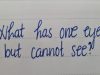 What has one eye
but cannot see?